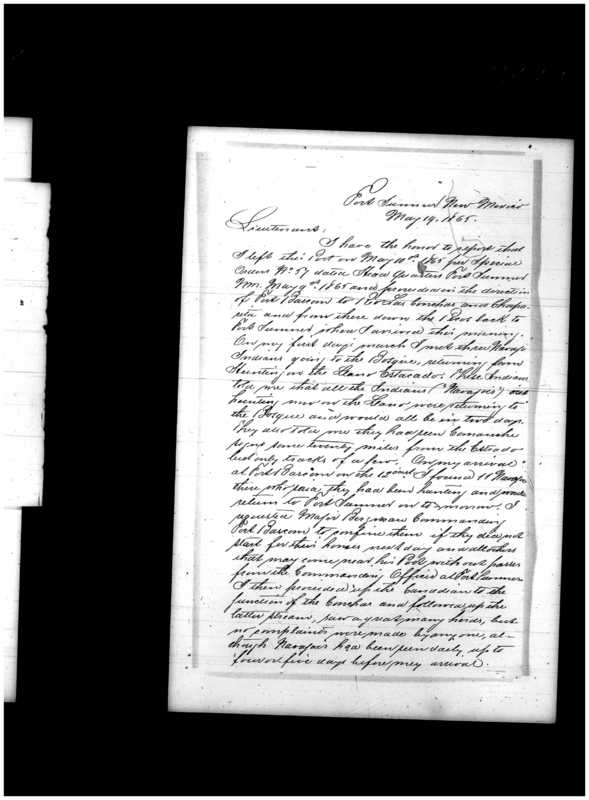 Fort Sumner New Mexico
May 19. 1865.
Lieutenant:
I have the honor to report that
I left this Post on May 10th 1865 per Special
Orders No 57 dated Head Quarters Fort Sumner
N.M. May 9th 1865 and proceeded in the direction
of Fort Bascom to Rio Las Conchas and Chapa-
rita and from there down the Pecos back to
Fort Sumner, where I arrived this morning.
On my first day's march I met three Navajo
Indians going to the Bosque, returning from
Hunting on the Llano Estacado. These Indians
told me that all the Indians (Navajoes) out
hunting now on the Llano, were returning to
the Bosque and would all be in two days.
They also told me they had seen Comanche
signs some twenty miles from the Estacado
but only tracks of a few. On my arrival
at Fort Bascom on the 12 inst I found 11 Navajos
there who said they had been hunting and would
return to Fort Sumner on to-morrow. I
requested Major Bergman Commanding
Fort Bascom to confine them if they did not
start for their homes next day and all others
that may come near his Post without passes
from the Commanding Officer at Fort Sumner.
I then proceeded up the Canadian to the
junction of the Conchas and followed up the
latter stream, saw a great many herds, but
no complaints were made by any one, al-
though Navajoes had been seen daily up to
four or five days before my arrival.